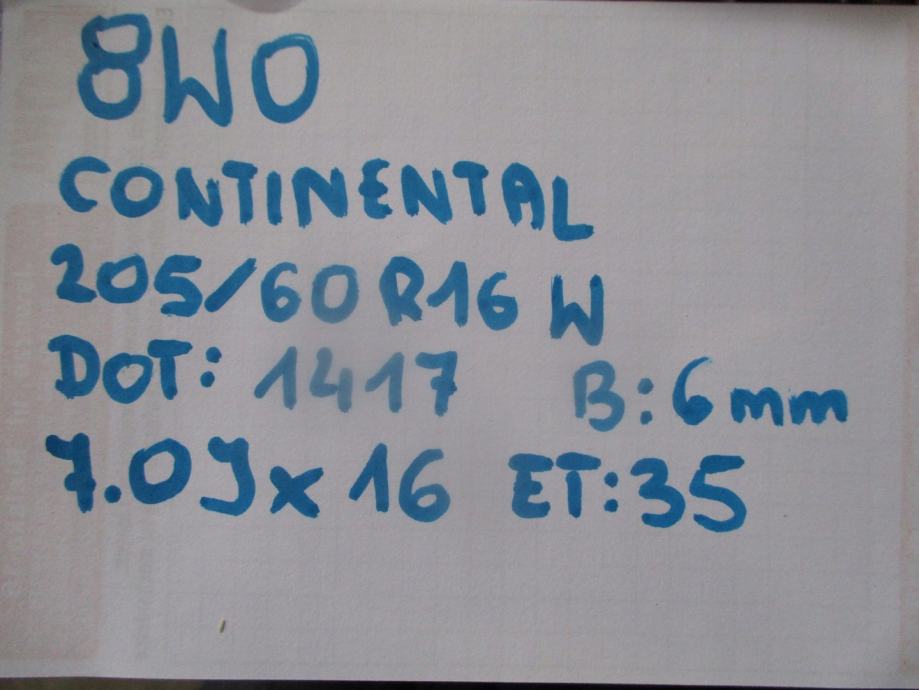 8W0
CONTINENTAL
205/60 R16 W
DOT: 1417 B: 6mm
7.0J x 16 ET:35